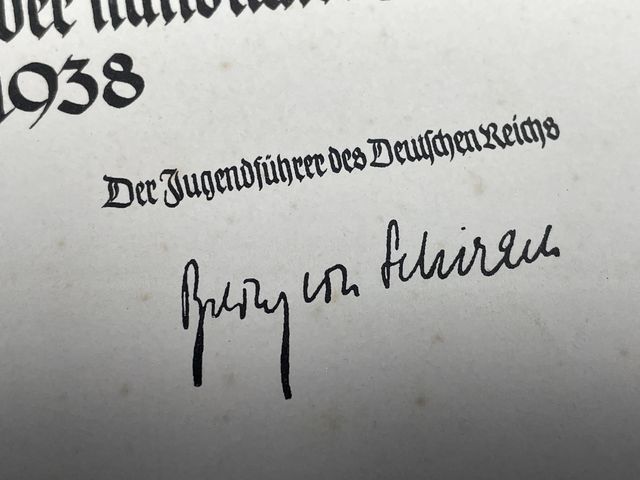 der
1938
Der Jugendführer des Deutschen Reichs
Baldur von Schirach